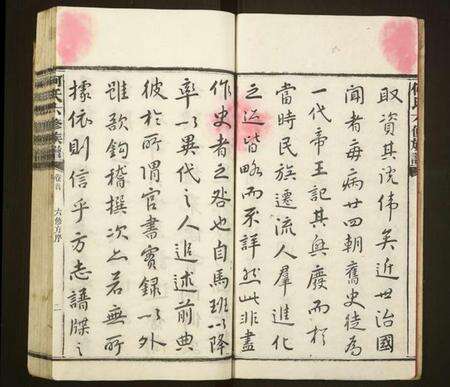 何氏六修族譜
取資其沈偉矣近世治國
聞者每病廿四朝舊史徒為
一代帝王記其興廢而於
當時民族遷流人羣進化
之迹皆略而不詳然此非盡
作史者之咎也自馬班以降
率以異代之人追述前典
彼於所謂官書實錄以外
雖欲鉤稽撰次上若無所
據依則信乎方志譜牒之
何氏六修族譜
卷首
六修方序
二